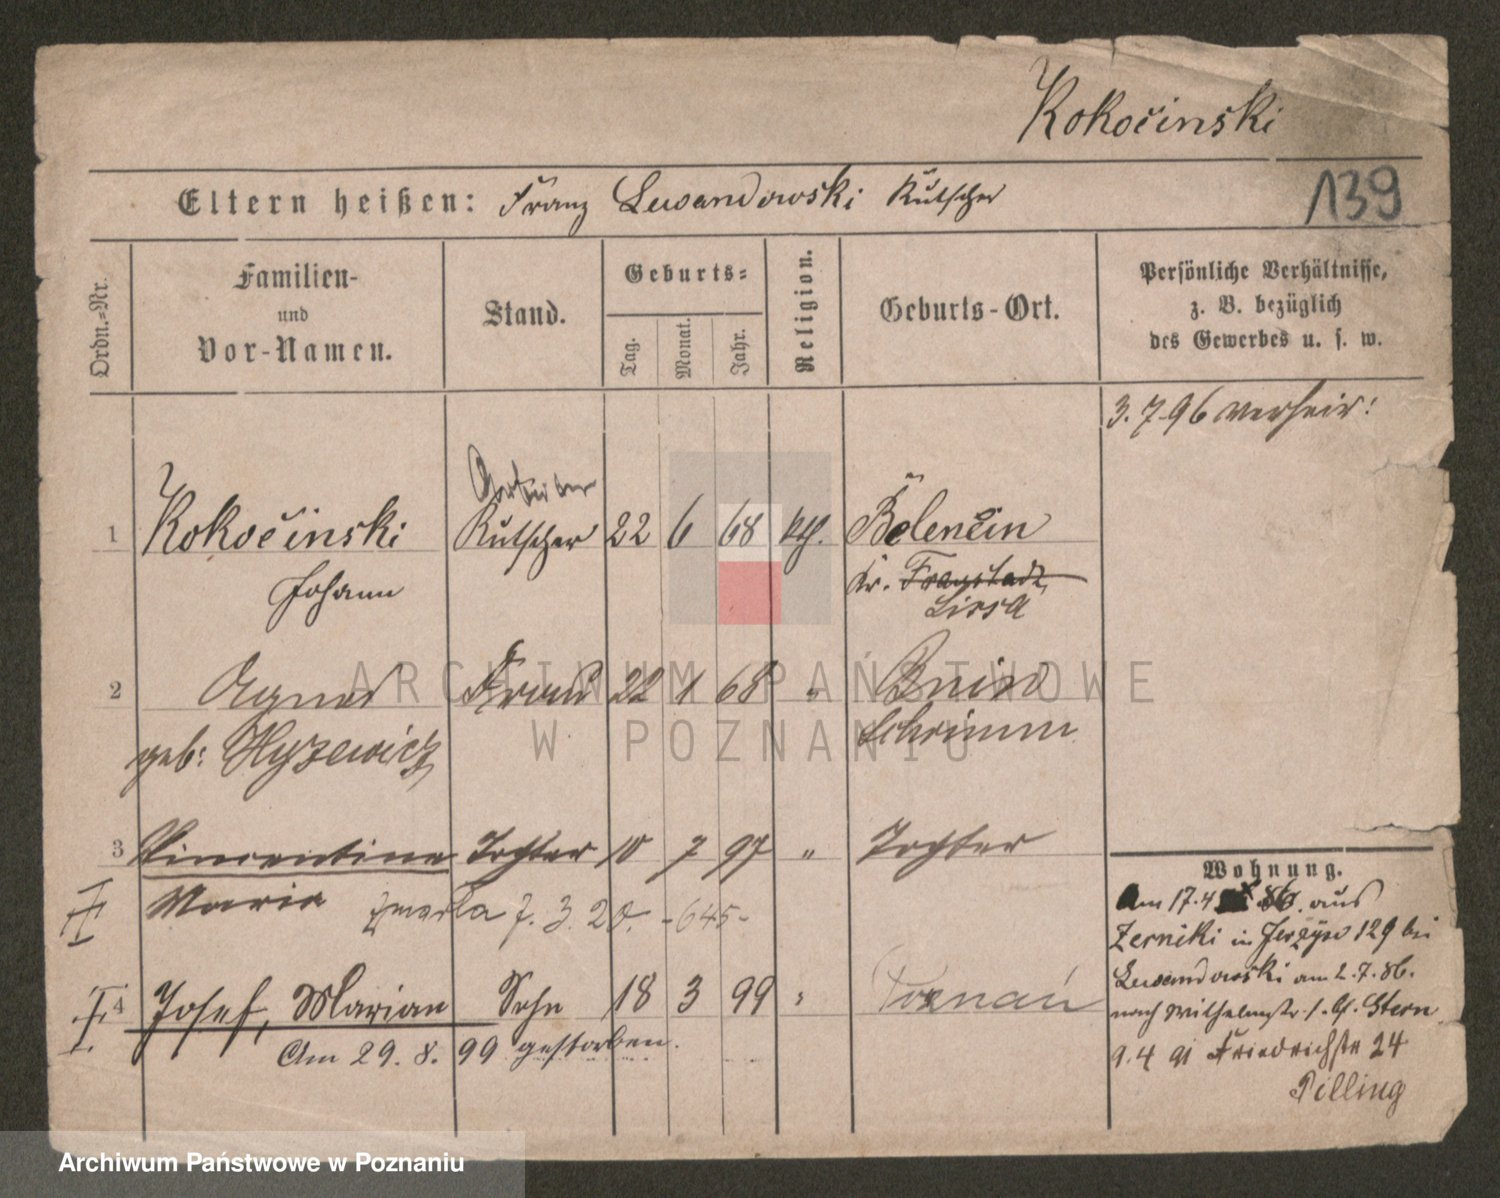 Kokocinski
Eltern heißen: Franz Lewandowski Kutscher
139
Ordn.=Nr.
Familien-
und
Vor-Namen.
Stand.
Geburts=
Tag.
Monat.
Jahr.
Religion.
Geburts-Ort.
Persönliche Verhältnisse,
z. B. bezüglich
des Gewerbes u. s. w.
3.7.96 verheir:
Arbeiter
1 Kokocinski Kutscher 22 6 68 kth. Belencin
Johann Kr. Fraustadt
Lissa
2 Agnes Frau 22 1 68 " Bnin
geb: Hyzewicz Schrimm
3 Vincentine Tochter 10 7 97 " Tochter
Maria zmarła 7. 3. 20. -645-
4 Josef, Marian Sohn 18 3 99 " Poznań
Am 29. 8. 99 gestorben.
Wohnung.
Am 17.4 86. aus
Zerniki in Jerzyce 129 bei
Lewandowski am 2.7.86.
nach Wilhelmstr. 1. b. Stern
9.4 91 Friedrichstr 24
Pilling
ARCHIWUM PAŃSTWOWE
W POZNANIU
Archiwum Państwowe w Poznaniu